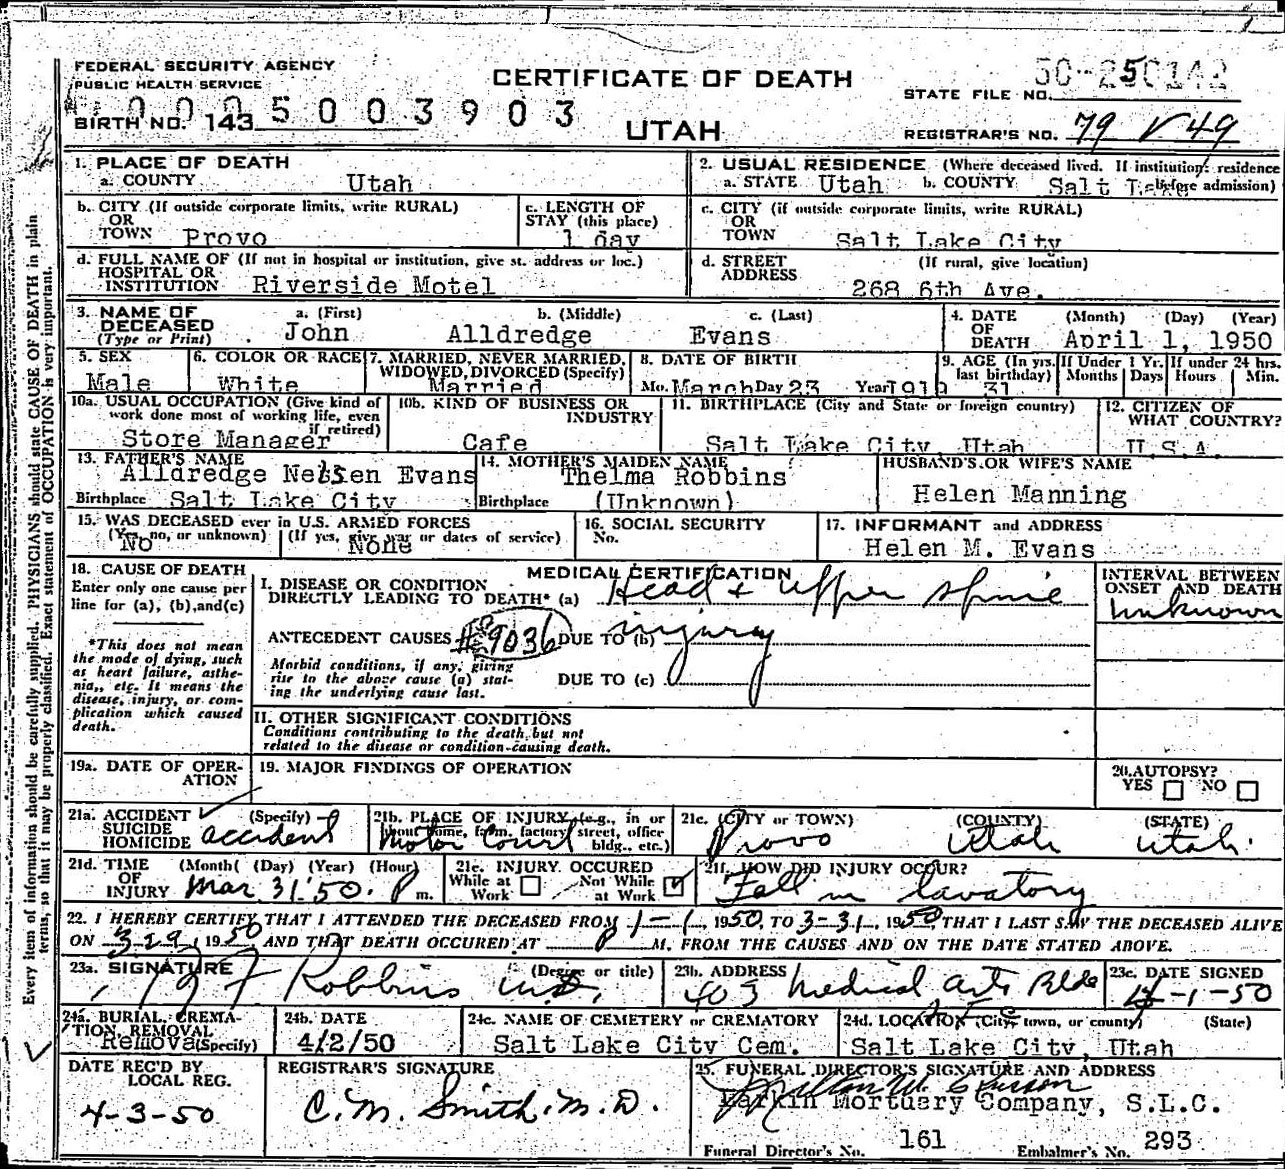 FEDERAL SECURITY AGENCY
PUBLIC HEALTH SERVICE
CERTIFICATE OF DEATH
UTAH
STATE FILE NO. 50-250142
BIRTH NO. 143 0005003903
REGISTRAR'S NO. 79 V 49
1. PLACE OF DEATH
a. COUNTY Utah
2. USUAL RESIDENCE (Where deceased lived. If institution: residence before admission)
a. STATE Utah b. COUNTY Salt
b. CITY (If outside corporate limits, write RURAL)
OR
TOWN Provo
c. LENGTH OF
STAY (this place)
1 day
c. CITY (if outside corporate limits, write RURAL)
OR
TOWN Salt Lake City
d. FULL NAME OF (If not in hospital or institution, give st. address or loc.)
HOSPITAL OR
INSTITUTION Riverside Motel
d. STREET (If rural, give location)
ADDRESS 268 6th Ave.
3. NAME OF
DECEASED
(Type or Print)
a. (First) b. (Middle) c. (Last)
John Alldredge Evans
4. DATE (Month) (Day) (Year)
OF
DEATH April 1, 1950
5. SEX
Male
6. COLOR OR RACE
White
7. MARRIED, NEVER MARRIED,
WIDOWED, DIVORCED (Specify)
Married
8. DATE OF BIRTH
Mo. March Day 23 Year 1919
9. AGE (In yrs. last birthday) 31
If Under 1 Yr. Months Days
If under 24 hrs. Hours Min.
10a. USUAL OCCUPATION (Give kind of
work done most of working life, even
if retired)
Store Manager
10b. KIND OF BUSINESS OR
INDUSTRY
Cafe
11. BIRTHPLACE (City and State or foreign country)
Salt Lake City, Utah
12. CITIZEN OF
WHAT COUNTRY?
U.S.A.
13. FATHER'S NAME
Alldredge Evans
Birthplace Salt Lake City
14. MOTHER'S MAIDEN NAME
Thelma Robbins
Birthplace (Unknown)
HUSBAND'S OR WIFE'S NAME
Helen Manning
15. WAS DECEASED ever in U.S. ARMED FORCES
(Yes, no, or unknown) (If yes, give war or dates of service)
No None
16. SOCIAL SECURITY
No.
17. INFORMANT and ADDRESS
Helen M. Evans
18. CAUSE OF DEATH
Enter only one cause per
line for (a), (b), and (c)
*This does not mean
the mode of dying, such
as heart failure, asthe-
nia, etc. It means the
disease, injury, or com-
plication which caused
death.
MEDICAL CERTIFICATION
I. DISEASE OR CONDITION
DIRECTLY LEADING TO DEATH* (a) Head & Upper Spine
ANTECEDENT CAUSES 9036 DUE TO (b) injury
Morbid conditions, if any, giving
rise to the above cause (a) stat-
ing the underlying cause last.
DUE TO (c)
II. OTHER SIGNIFICANT CONDITIONS
Conditions contributing to the death but not
related to the disease or condition causing death.
INTERVAL BETWEEN
ONSET AND DEATH
Unknown
19a. DATE OF OPER-
ATION
19. MAJOR FINDINGS OF OPERATION
20. AUTOPSY?
YES NO
21a. ACCIDENT (Specify)
SUICIDE
HOMICIDE accident
21b. PLACE OF INJURY (e.g., in or
about home, farm, factory, street, office
bldg., etc.)
Motor Court
21c. (CITY or TOWN) (COUNTY) (STATE)
Provo Utah Utah
21d. TIME (Month) (Day) (Year) (Hour)
OF
INJURY Mar 31 '50 P m.
21e. INJURY OCCURED
While at Work Not While at Work
21f. HOW DID INJURY OCCUR?
Fall in lavatory
22. I HEREBY CERTIFY THAT I ATTENDED THE DECEASED FROM 1-1, 1950, TO 3-31, 1950, THAT I LAST SAW THE DECEASED ALIVE
ON 3-29, 1950 AND THAT DEATH OCCURED AT P M, FROM THE CAUSES AND ON THE DATE STATED ABOVE.
23a. SIGNATURE (Degree or title)
Robbins M.D.
23b. ADDRESS
403 Medical Arts Bldg
23c. DATE SIGNED
4-1-50
24a. BURIAL, CREMA-
TION, REMOVAL
(Specify) Removal
24b. DATE
4/2/50
24c. NAME OF CEMETERY or CREMATORY
Salt Lake City Cem.
24d. LOCATION (City, town, or county) (State)
Salt Lake City, Utah
DATE REC'D BY
LOCAL REG.
4-3-50
REGISTRAR'S SIGNATURE
C. M. Smith. M. D.
25. FUNERAL DIRECTOR'S SIGNATURE AND ADDRESS
Larkin Mortuary Company, S.L.C.
Funeral Director's No. 161 Embalmer's No. 293
Every item of information should be carefully supplied. PHYSICIANS should state CAUSE OF DEATH in plain
terms, so that it may be properly classified. Exact statement of OCCUPATION is very important.